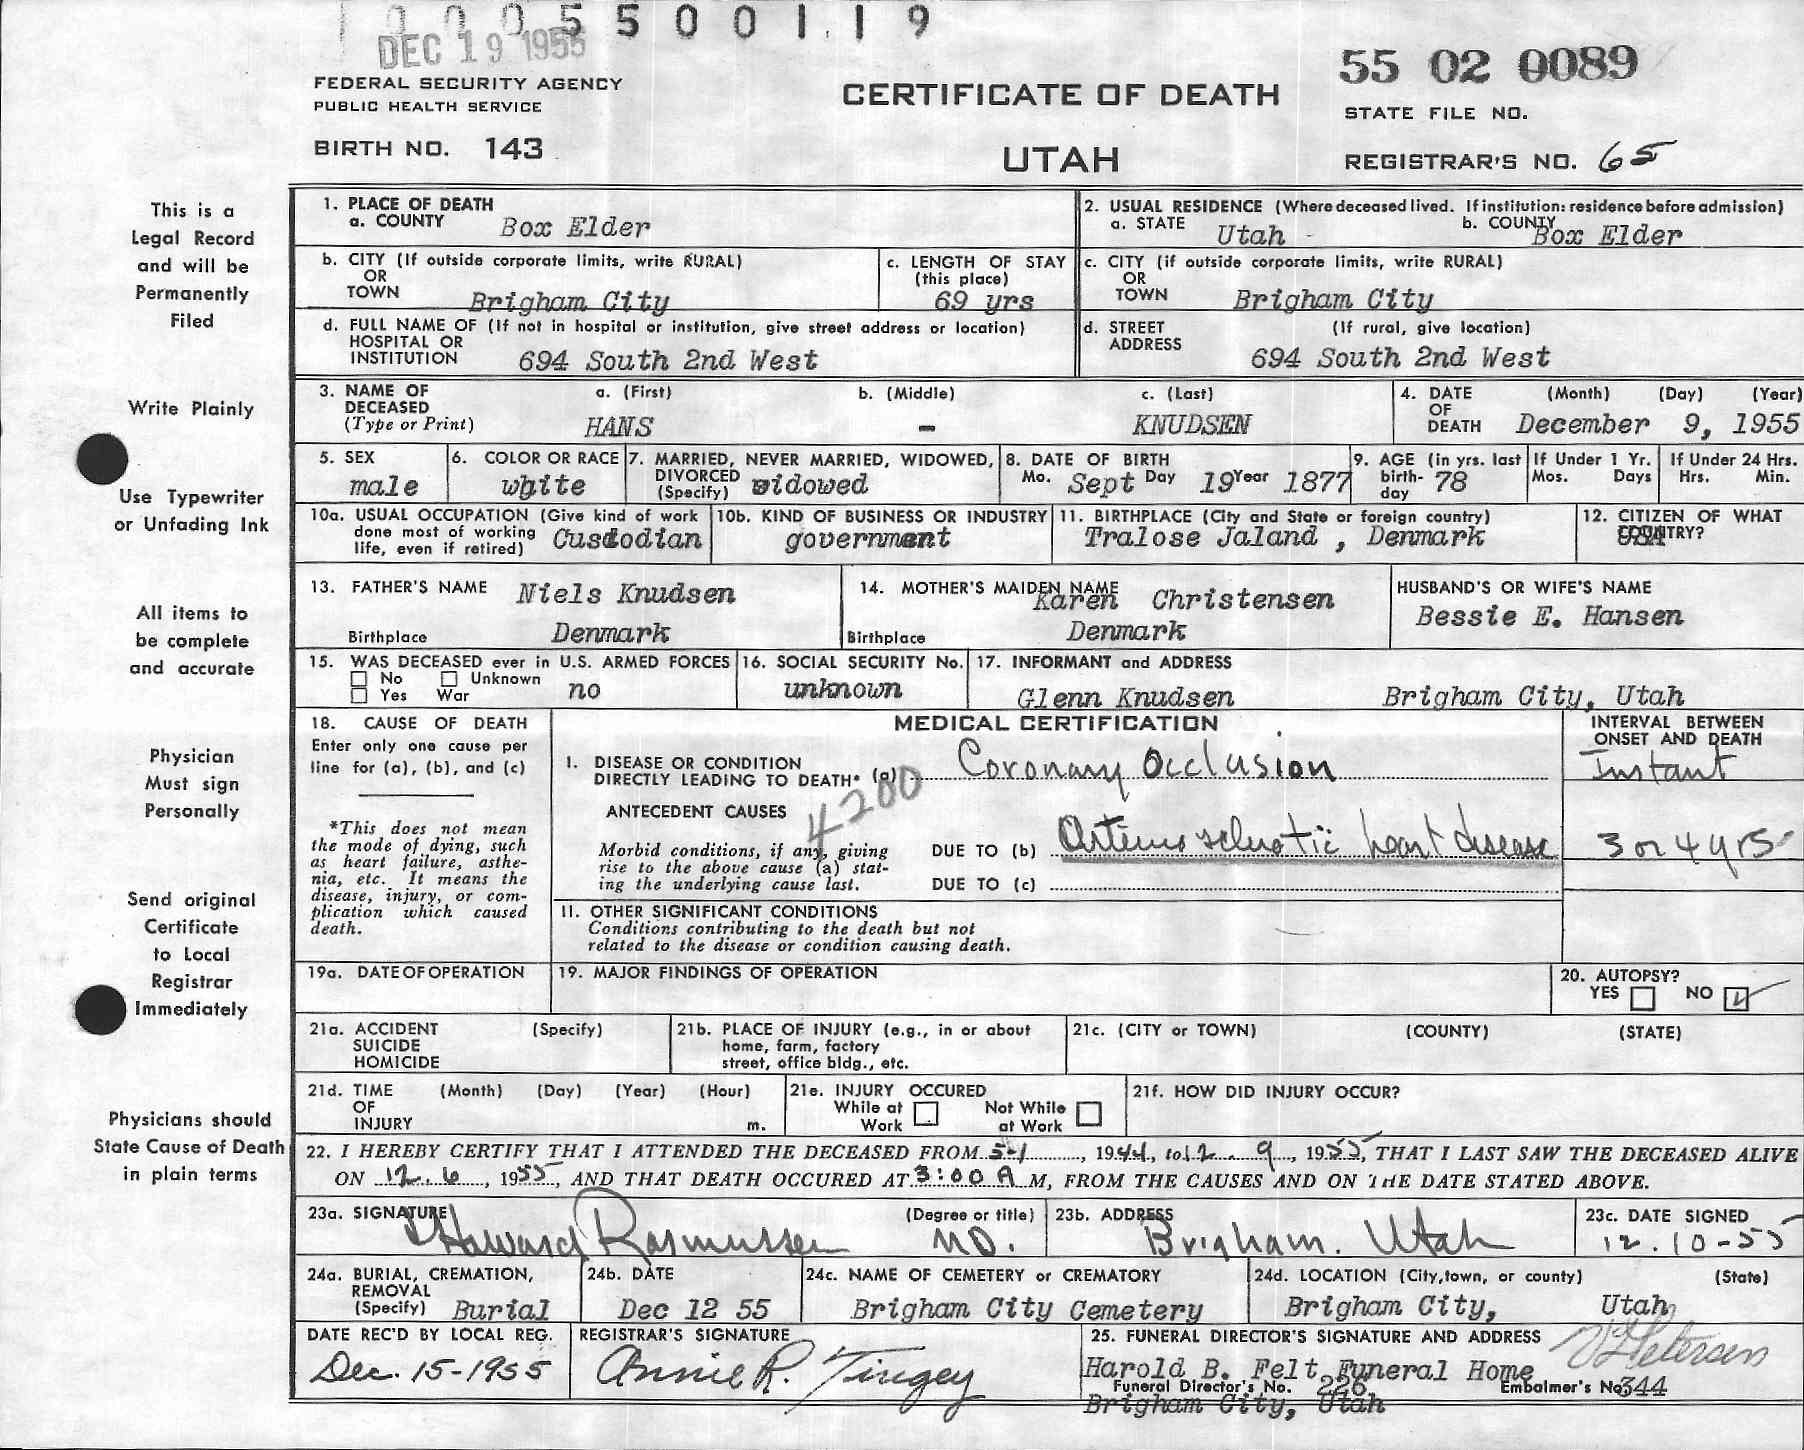 1 0 0 0 5 5 0 0 1 1 9
DEC 19 1955
FEDERAL SECURITY AGENCY
PUBLIC HEALTH SERVICE
BIRTH NO. 143
CERTIFICATE OF DEATH
UTAH
55 02 0089
STATE FILE NO.
REGISTRAR'S NO. 65
This is a
Legal Record
and will be
Permanently
Filed
Write Plainly
Use Typewriter
or Unfading Ink
All items to
be complete
and accurate
Physician
Must sign
Personally
Send original
Certificate
to Local
Registrar
Immediately
Physicians should
State Cause of Death
in plain terms
1. PLACE OF DEATH
a. COUNTY Box Elder
2. USUAL RESIDENCE (Where deceased lived. If institution: residence before admission)
a. STATE Utah - b. COUNTY Box Elder
b. CITY (If outside corporate limits, write RURAL)
OR
TOWN Brigham City
c. LENGTH OF STAY
(this place)
69 yrs
c. CITY (if outside corporate limits, write RURAL)
OR
TOWN Brigham City
d. FULL NAME OF (If not in hospital or institution, give street address or location)
HOSPITAL OR
INSTITUTION 694 South 2nd West
d. STREET (If rural, give location)
ADDRESS
694 South 2nd West
3. NAME OF a. (First) b. (Middle) c. (Last)
DECEASED
(Type or Print) HANS - KNUDSEN
4. DATE (Month) (Day) (Year)
OF
DEATH December 9, 1955
5. SEX
male
6. COLOR OR RACE
white
7. MARRIED, NEVER MARRIED, WIDOWED,
DIVORCED
(Specify) widowed
8. DATE OF BIRTH
Mo. Sept Day 19 Year 1877
9. AGE (in yrs. last
birth-
day 78
If Under 1 Yr.
Mos. Days
If Under 24 Hrs.
Hrs. Min.
10a. USUAL OCCUPATION (Give kind of work
done most of working
life, even if retired) Custodian
10b. KIND OF BUSINESS OR INDUSTRY
government
11. BIRTHPLACE (City and State or foreign country)
Tralose Jaland , Denmark
12. CITIZEN OF WHAT
COUNTRY?
USA
13. FATHER'S NAME Niels Knudsen
Birthplace Denmark
14. MOTHER'S MAIDEN NAME
Karen Christensen
Birthplace Denmark
HUSBAND'S OR WIFE'S NAME
Bessie E. Hansen
15. WAS DECEASED ever in U.S. ARMED FORCES
No Unknown
Yes War no
16. SOCIAL SECURITY No.
unknown
17. INFORMANT and ADDRESS
Glenn Knudsen Brigham City, Utah
18. CAUSE OF DEATH
Enter only one cause per
line for (a), (b), and (c)
*This does not mean
the mode of dying, such
as heart failure, asthe-
nia, etc. It means the
disease, injury, or com-
plication which caused
death.
MEDICAL CERTIFICATION
INTERVAL BETWEEN
ONSET AND DEATH
I. DISEASE OR CONDITION
DIRECTLY LEADING TO DEATH* (a) Coronary Occlusion Instant
4200
ANTECEDENT CAUSES
Morbid conditions, if any, giving
rise to the above cause (a) stat-
ing the underlying cause last.
DUE TO (b) Arteriosclerotic heart disease 3 or 4 yrs
DUE TO (c)
II. OTHER SIGNIFICANT CONDITIONS
Conditions contributing to the death but not
related to the disease or condition causing death.
19a. DATE OF OPERATION
19. MAJOR FINDINGS OF OPERATION
20. AUTOPSY?
YES NO ✓
21a. ACCIDENT (Specify)
SUICIDE
HOMICIDE
21b. PLACE OF INJURY (e.g., in or about
home, farm, factory
street, office bldg., etc.
21c. (CITY or TOWN) (COUNTY) (STATE)
21d. TIME (Month) (Day) (Year) (Hour)
OF
INJURY m.
21e. INJURY OCCURED
While at Not While
Work at Work
21f. HOW DID INJURY OCCUR?
22. I HEREBY CERTIFY THAT I ATTENDED THE DECEASED FROM 5-1, 1944, to 12.9, 1955, THAT I LAST SAW THE DECEASED ALIVE
ON 12.6, 1955, AND THAT DEATH OCCURED AT 3:00 A M, FROM THE CAUSES AND ON THE DATE STATED ABOVE.
23a. SIGNATURE (Degree or title)
Howard Rasmussen MD.
23b. ADDRESS
Brigham. Utah
23c. DATE SIGNED
12.10-55
24a. BURIAL, CREMATION,
REMOVAL
(Specify) Burial
24b. DATE
Dec 12 55
24c. NAME OF CEMETERY or CREMATORY
Brigham City Cemetery
24d. LOCATION (City, town, or county) (State)
Brigham City, Utah
DATE REC'D BY LOCAL REG.
Dec. 15-1955
REGISTRAR'S SIGNATURE
Annie R. Tingey
25. FUNERAL DIRECTOR'S SIGNATURE AND ADDRESS
Petersen
Harold B. Felt Funeral Home
Funeral Director's No. 226 Embalmer's No. 344
Brigham City, Utah